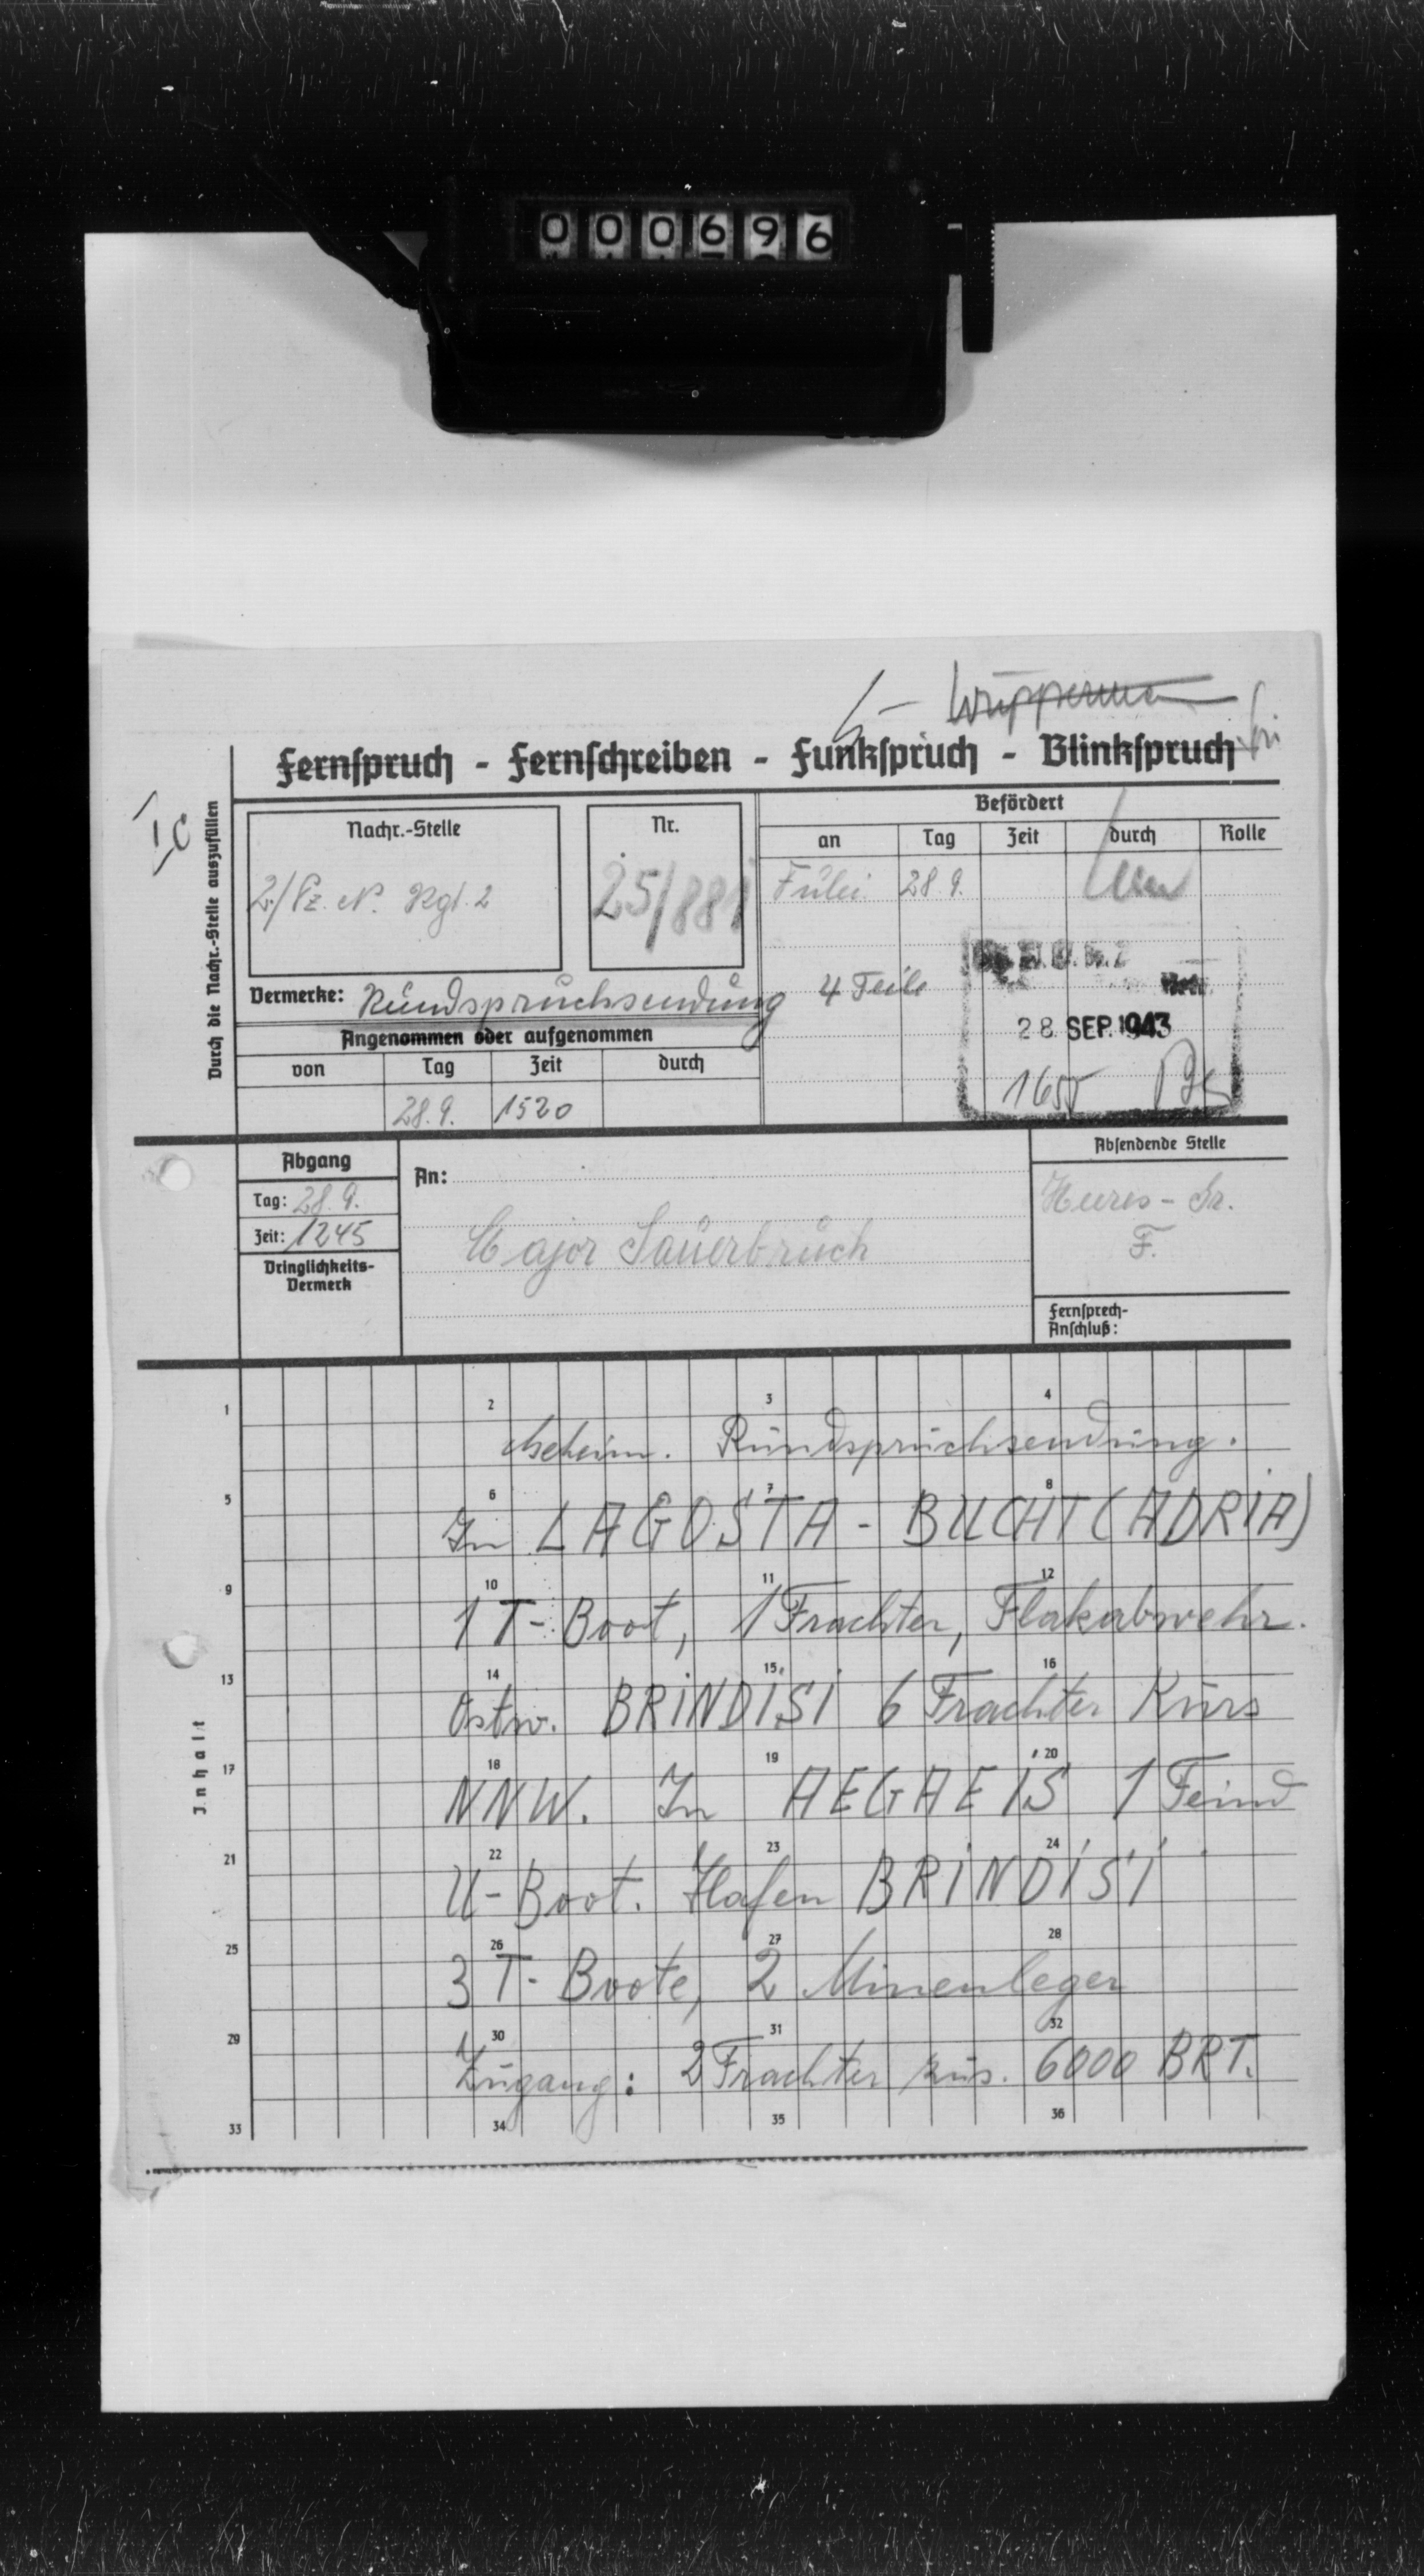 000696
Wüppermann
Fernspruch - Fernschreiben - Funkspruch - Blinkspruch
Ic
Durch die Nachr.-Stelle auszufüllen
Nachr.-Stelle
2./Pz. N. Rgt. 2
Nr.
25/881
Befördert
an Tag Zeit durch Rolle
28.9.
4 Teile
28. SEP. 1943
1655
Vermerke: Rundspruchsendung
Angenommen oder aufgenommen
von Tag Zeit durch
28.9. 1520
Abgang
Tag: 28.9.
Zeit: 1245
Dringlichkeits-
Vermerk
An:
Major Sauerbruch
Absendende Stelle
Heeres-
F.
Fernsprech-
Anschluß:
Inhalt
1 2 3 4
Geheim. Rundspruchsendung.
5 6 7 8
In LAGOSTA - BUCHT (ADRIA)
9 10 11 12
1 T-Boot, 1 Frachter, Flakabwehr.
13 14 15 16
Ostw. BRINDISI 6 Frachter Kurs
17 18 19 20
NNW. In AEGAEIS 1 Feind
21 22 23 24
U-Boot. Hafen BRINDISI
25 26 27 28
3 T-Boote, 2 Minenleger
29 30 31 32
Zugang: 2 Frachter zus. 6000 BRT.
33 34 35 36